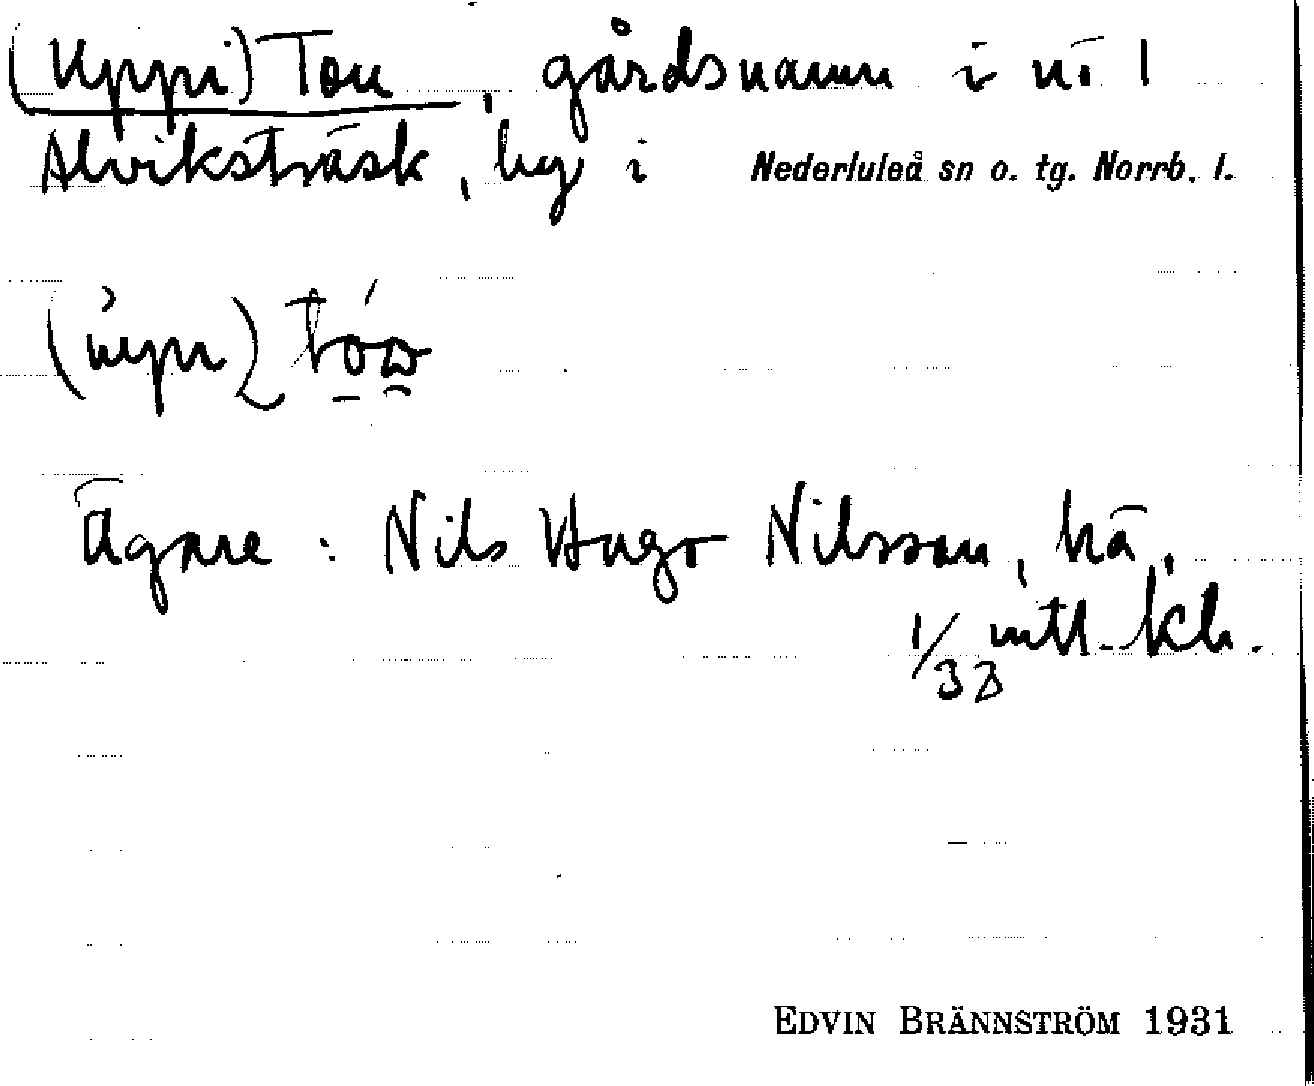 (Uppi) Tou, gårdsnamn i nr 1
Alviksträsk, by i Nederluleå sn o. tg. Norrb. l.
Ägare: Nils Hugo Nilsson, hä,
1/33 mtl. kh.
EDVIN BRÄNNSTRÖM 1931